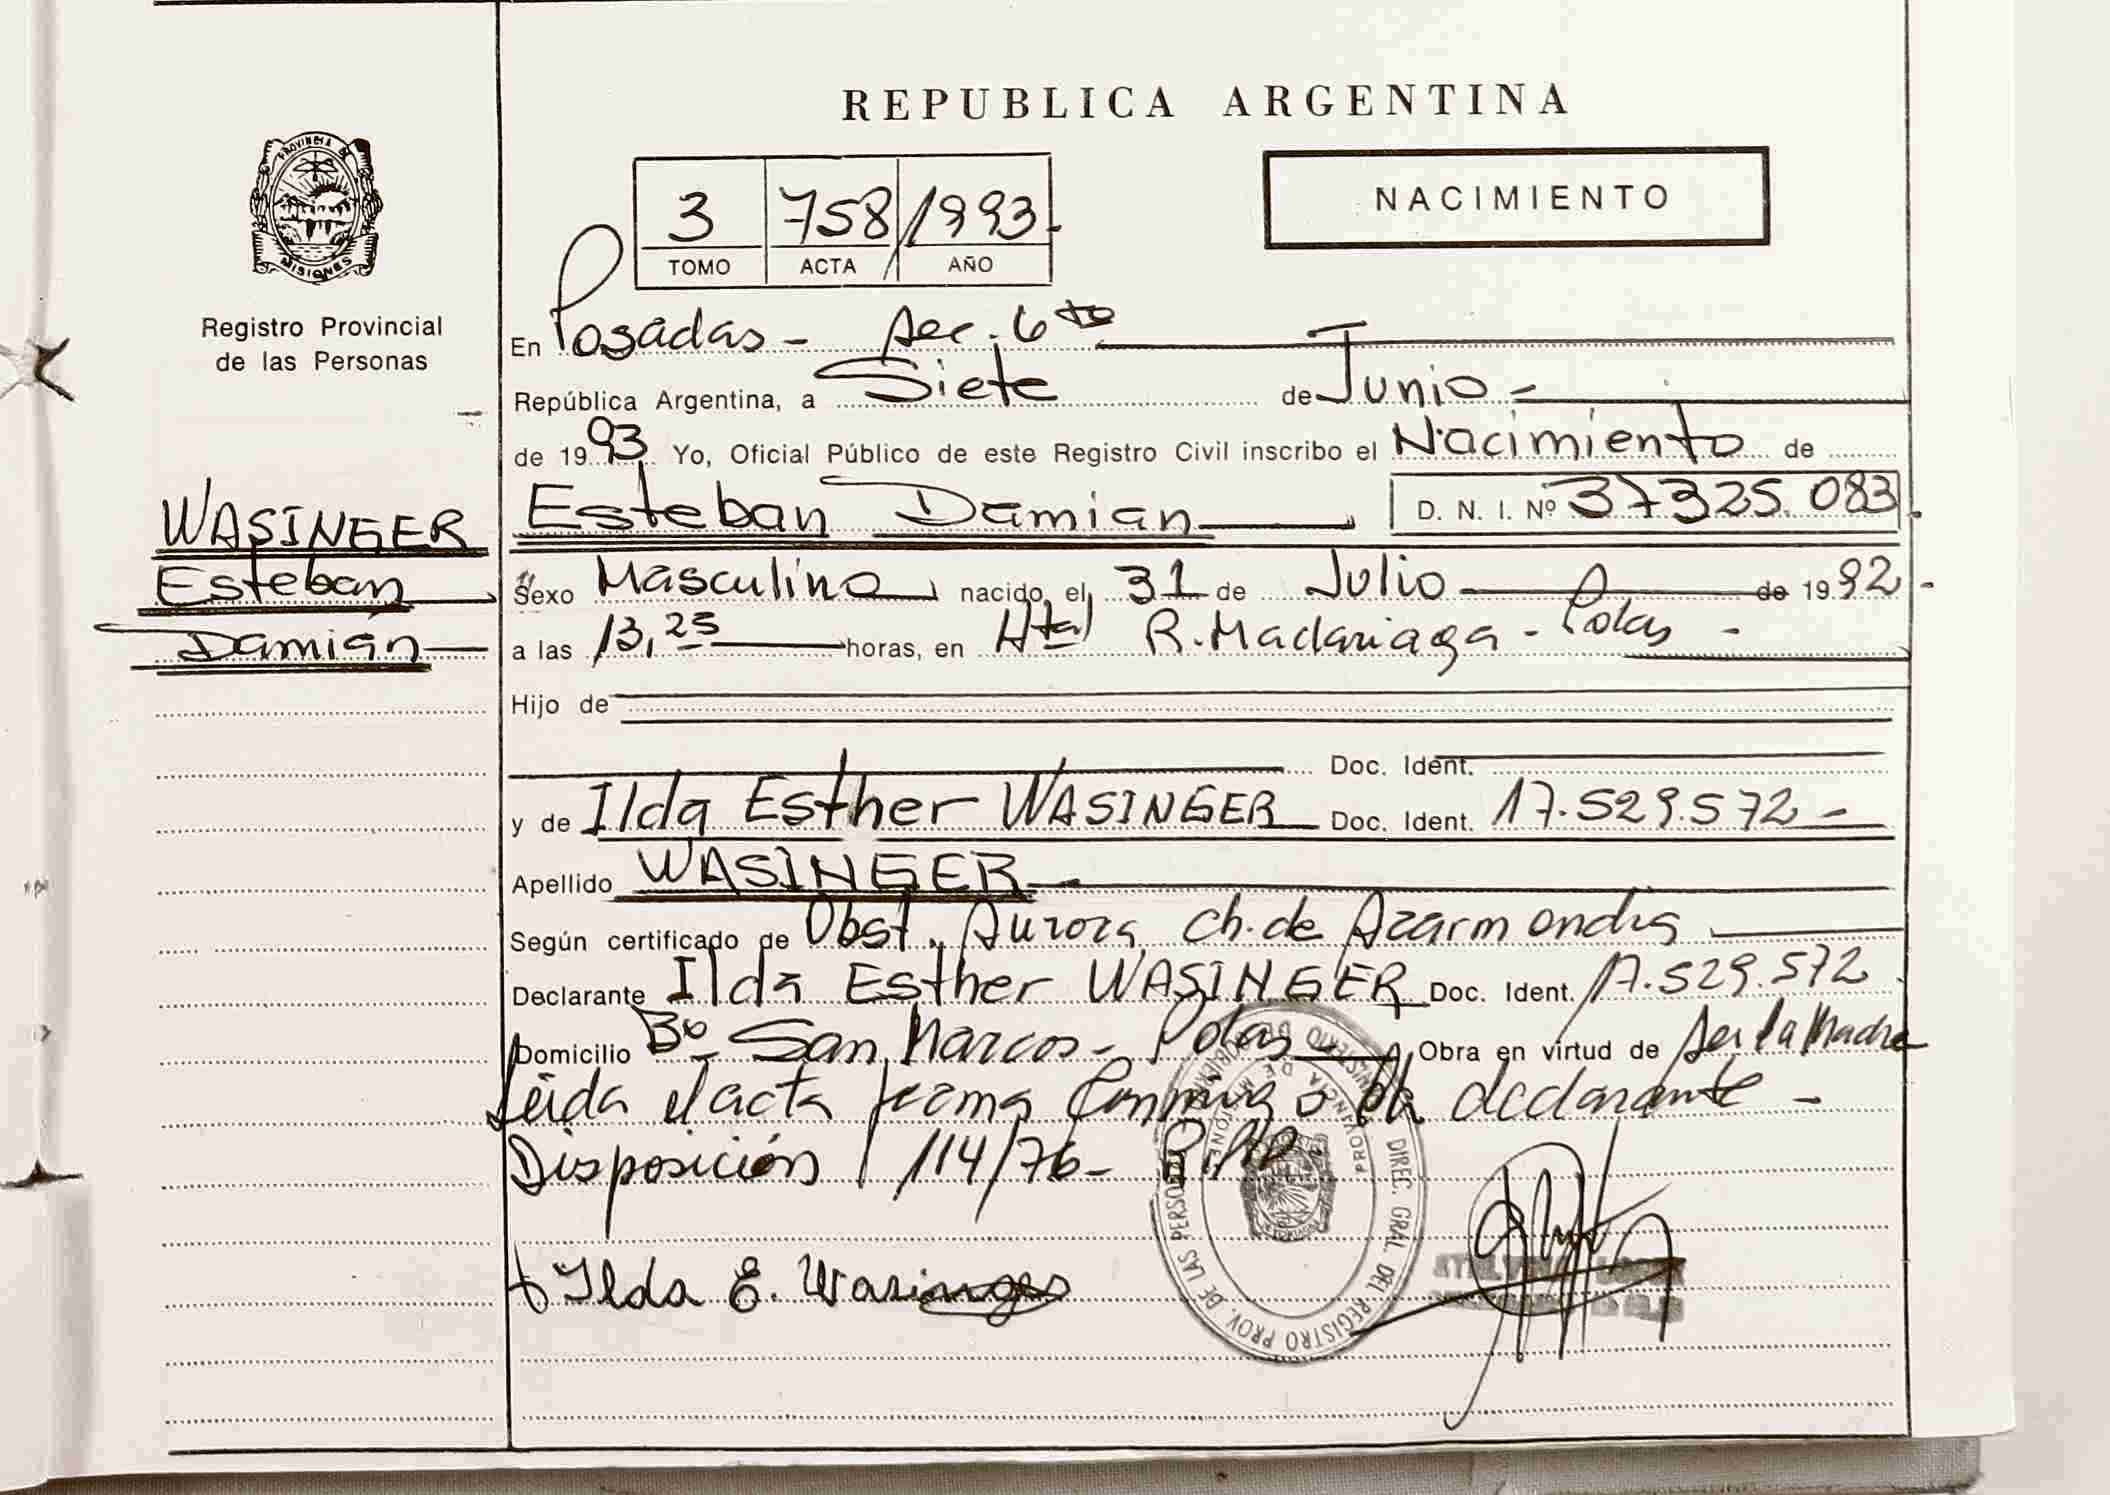 REPUBLICA ARGENTINA
PROVINCIA DE
MISIONES
Registro Provincial
de las Personas
3 758 / 1993.
TOMO ACTA AÑO
NACIMIENTO
En Posadas - Sec. 6ta
República Argentina, a Siete de Junio -
de 1993 Yo, Oficial Público de este Registro Civil inscribo el Nacimiento de
Esteban Damian D. N. I. Nº 37325.083.
WASINGER
Esteban
Damián
Sexo Masculino nacido el 31 de Julio de 1992 -
a las 13,25 horas, en Htal R. Madariaga - Pdas -
Hijo de
Doc. Ident.
y de Ilda Esther WASINGER Doc. Ident. 17.529.572 -
Apellido WASINGER -
Según certificado de Obst. Aurora Ch. de Azarmendia
Declarante Ilda Esther WASINGER Doc. Ident. 17.529.572
Domicilio Bº San Marcos - Pdas - Obra en virtud de ser la Madre
Leida el acta firma conmigo la declarante -
Disposición 114/76 -
Ilda E. Wasinger
DIREC. GRAL. DEL REGISTRO PROV. DE LAS PERSONAS
PROVINCIA DE MISIONES